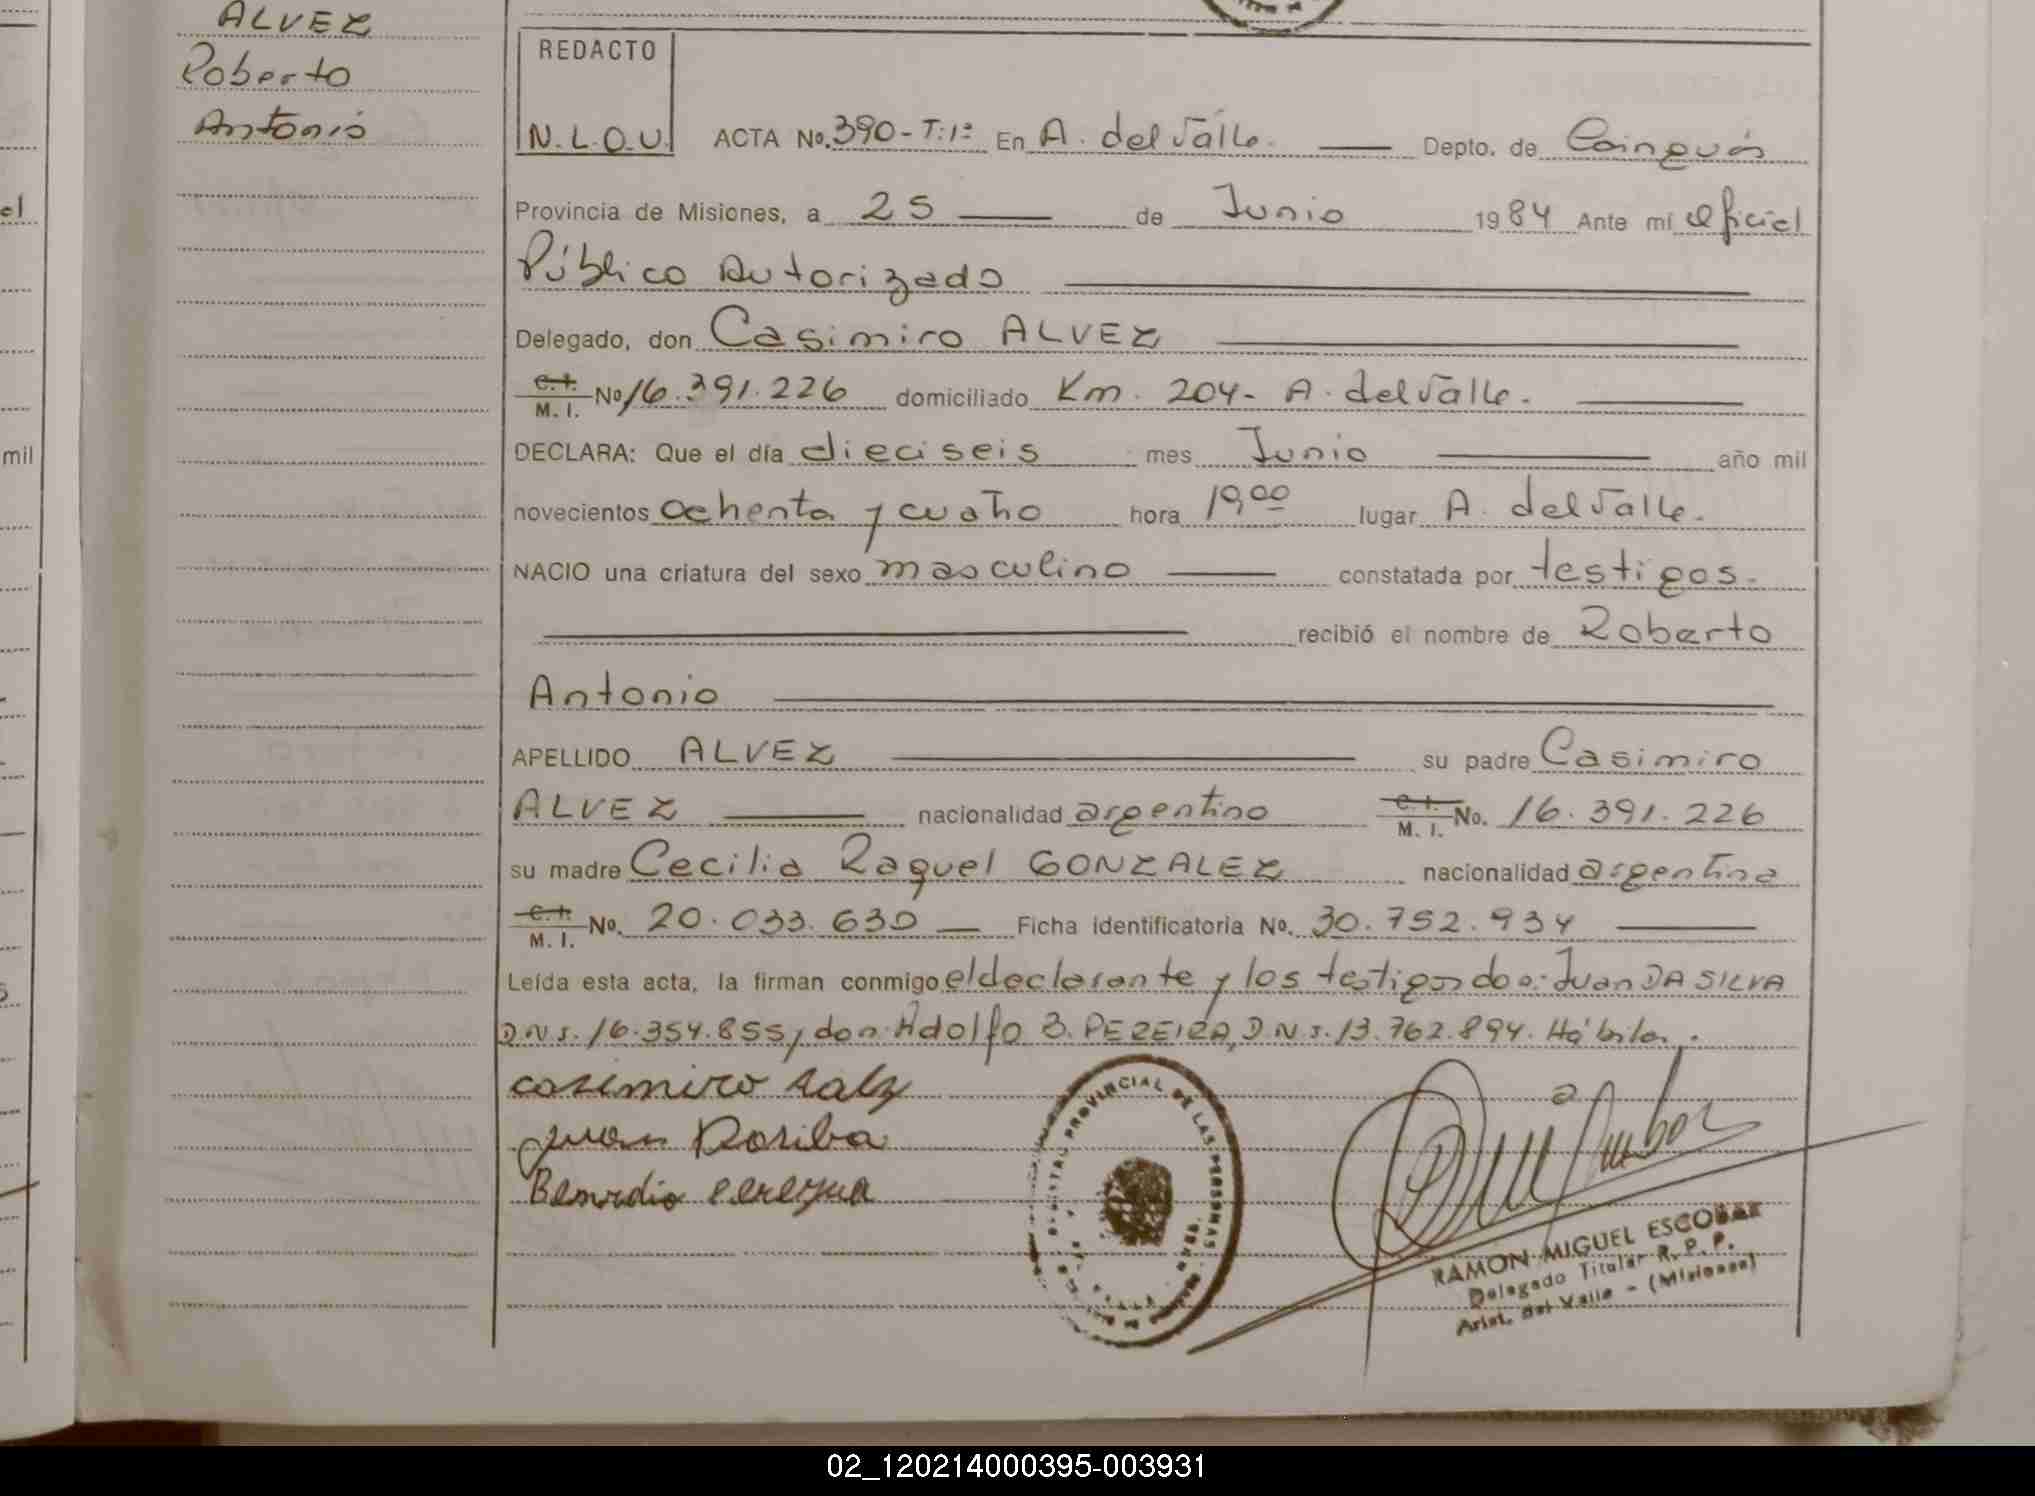 ALVEZ
Roberto
Antonio
el
mil
REDACTO
N.L.O.U. ACTA No. 390-T:1º En A. del Valle. Depto. de Cainguás
Provincia de Misiones, a 25 de Junio 1984 Ante mí oficial
Público Autorizado
Delegado, don Casimiro ALVEZ
C.I. M.I. No 16.391.226 domiciliado Km. 204- A. del Valle.
DECLARA: Que el día dieciseis mes Junio año mil
novecientos ochenta y cuatro hora 19,00 lugar A. del Valle.
NACIO una criatura del sexo masculino constatada por testigos.
recibió el nombre de Roberto
Antonio
APELLIDO ALVEZ su padre Casimiro
ALVEZ nacionalidad argentino C.I. M.I. No. 16.391.226
su madre Cecilia Raquel GONZALEZ nacionalidad argentina
C.I. M.I. No. 20.033.630 Ficha identificatoria No. 30.752.934
Leída esta acta, la firman conmigo el declarante y los testigos don: Juan DA SILVA
D.N.I. 16.354.855, don Adolfo B. PEREIRA, D.N.I. 13.762.894. Hábiles.
casimiro
juan
PROVINCIAL DE LAS PERSONAS
RAMON MIGUEL ESCOBAR
Delegado Titular R. P. P.
Arist. del Valle - (Misiones)
02_120214000395-003931